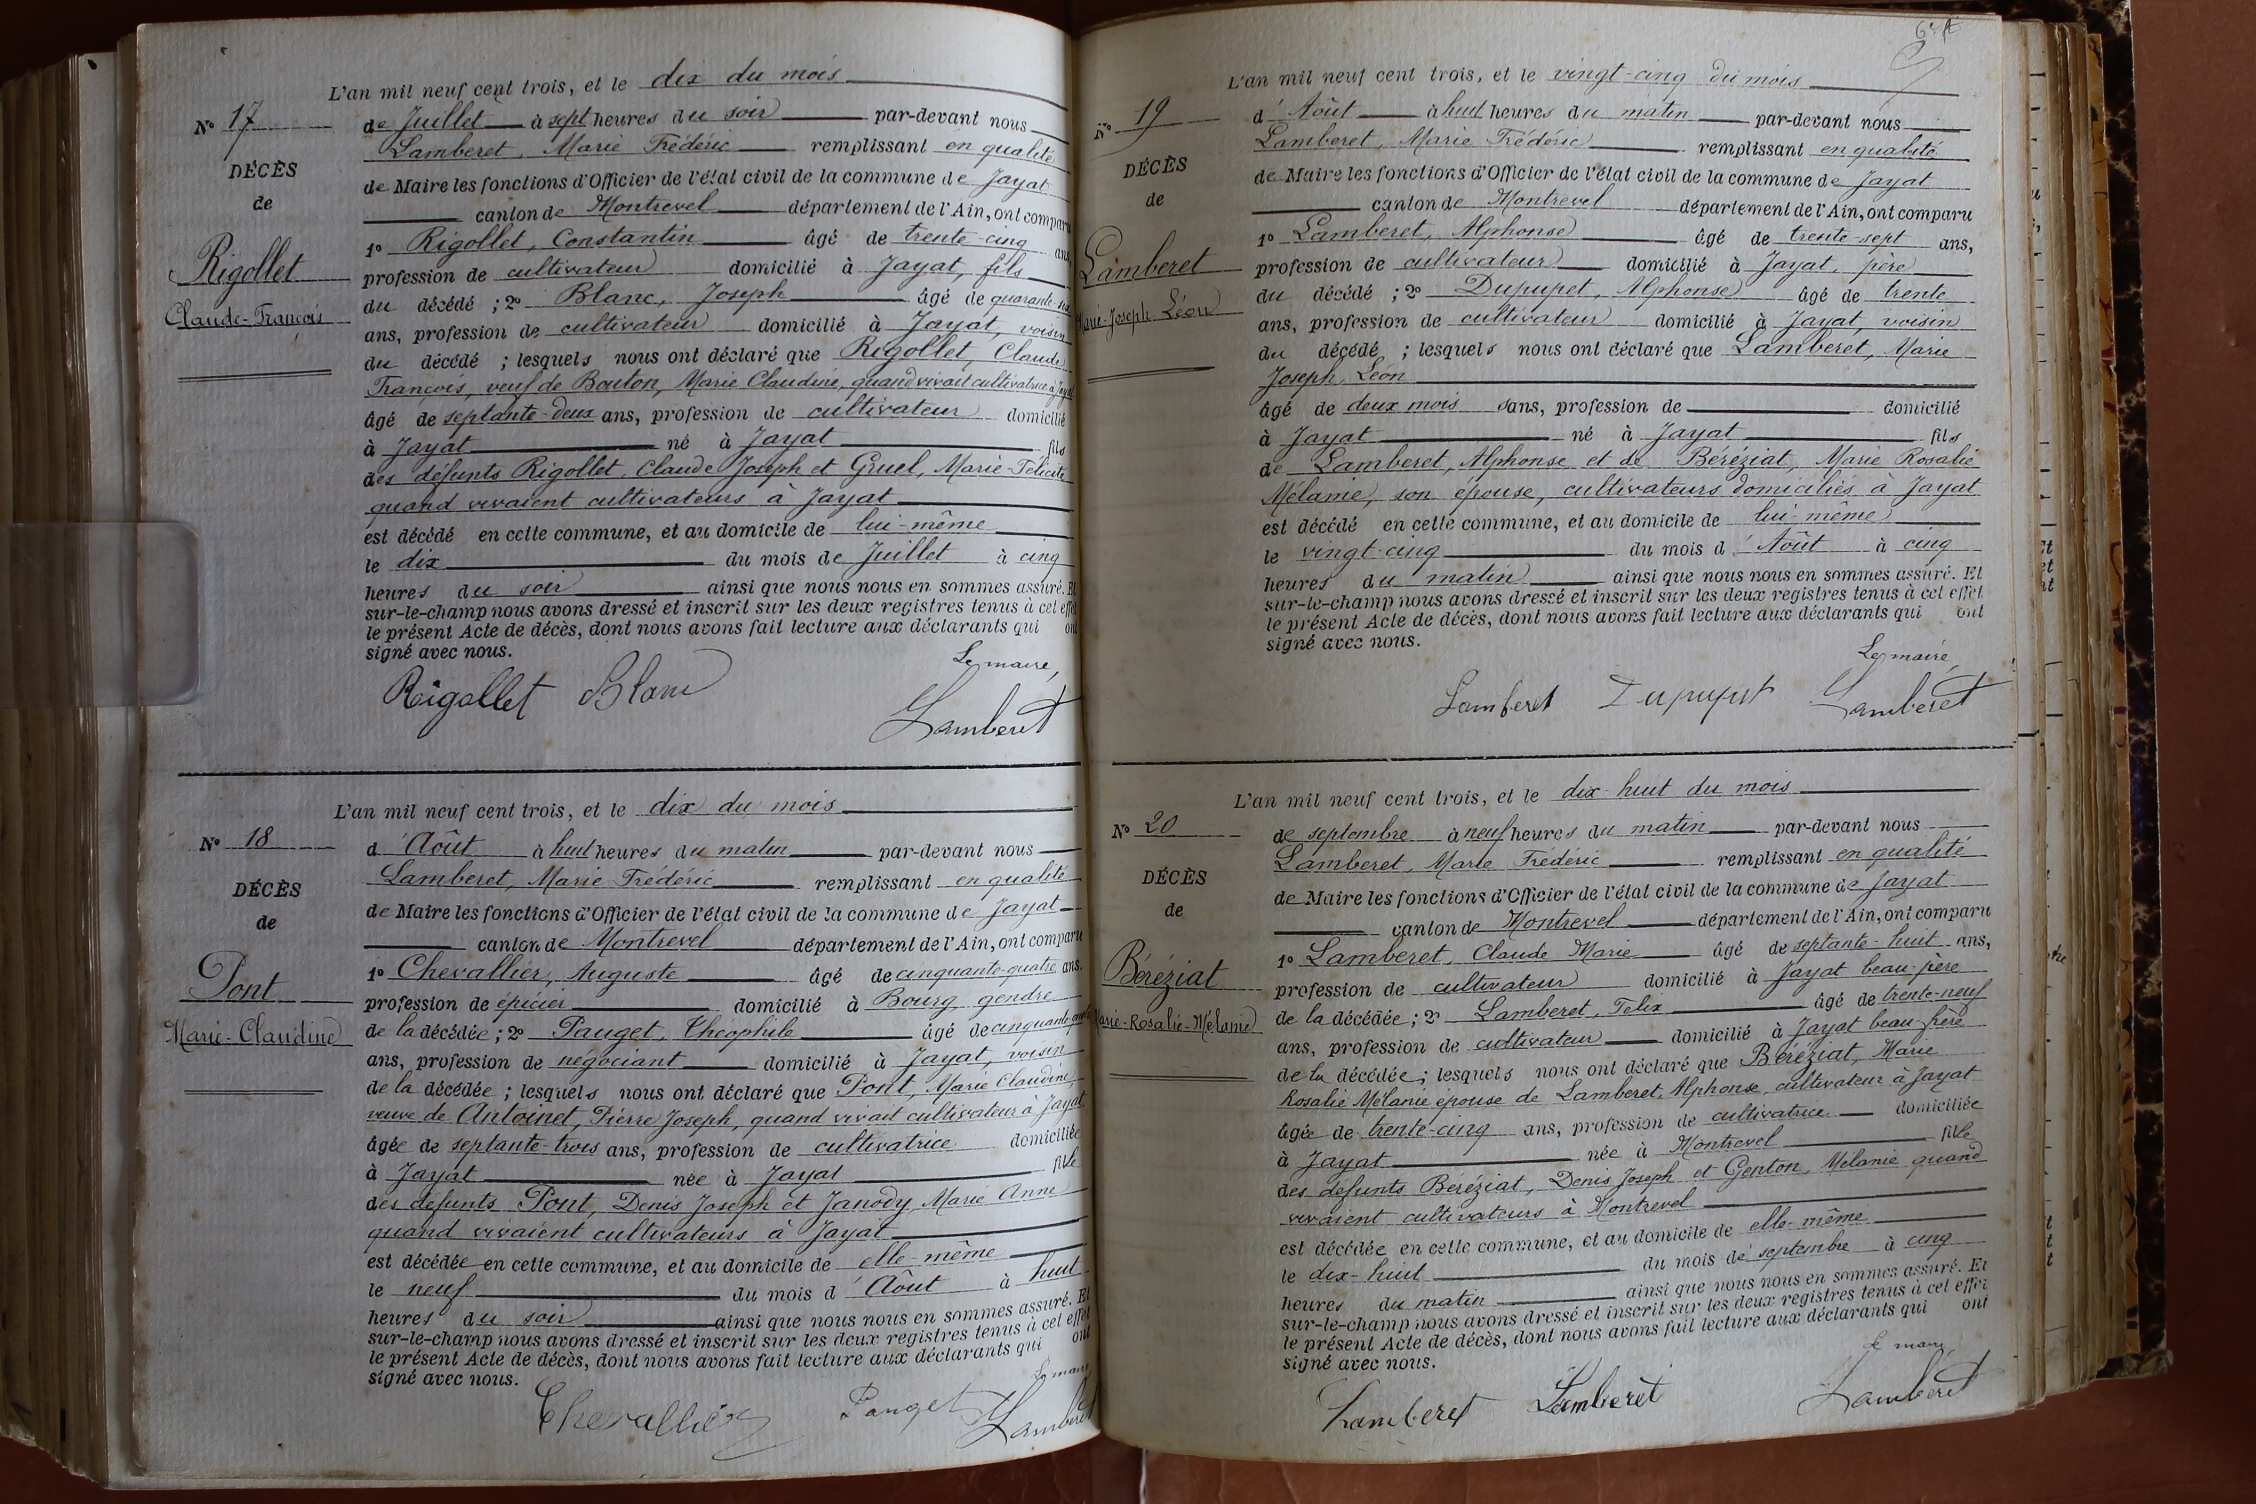 L'an mil neuf cent trois, et le dix du mois
N° 17
de Juillet à sept heures du soir par-devant nous
Lamberet, Marie Frédéric remplissant en qualité
DÉCÈS
de Maire les fonctions d'Officier de l'état civil de la commune de Jayat
de
canton de Montrevel département de l'Ain, ont comparu
1° Rigollet, Constantin âgé de trente-cinq ans
Rigollet
profession de cultivateur domicilié à Jayat, fils
du décédé ; 2° Blanc, Joseph âgé de quarante-six
Claude-François
ans, profession de cultivateur domicilié à Jayat, voisin
du décédé ; lesquels nous ont déclaré que Rigollet, Claude
François, veuf de Bouton, Marie Claudine, quand vivait cultivatrice à Jayat
âgé de septante-deux ans, profession de cultivateur domicilié
à Jayat né à Jayat fils
des défunts Rigollet, Claude Joseph et Gruel, Marie-Félicité
quand vivaient cultivateurs à Jayat
est décédé en cette commune, et au domicile de lui-même
le dix du mois de Juillet à cinq
heures du soir ainsi que nous nous en sommes assuré. Et
sur-le-champ nous avons dressé et inscrit sur les deux registres tenus à cet effet
le présent Acte de décès, dont nous avons fait lecture aux déclarants qui ont
signé avec nous.
Le maire,
Rigollet Blanc
Lamberet
L'an mil neuf cent trois, et le dix du mois
N° 18
d'Août à huit heures du matin par-devant nous
Lamberet, Marie Frédéric remplissant en qualité
DÉCÈS
de Maire les fonctions d'Officier de l'état civil de la commune de Jayat
de
canton de Montrevel département de l'Ain, ont comparu
1° Chevallier, Auguste âgé de cinquante-quatre ans.
Pont
profession de épicier domicilié à Bourg gendre
Marie-Claudine
de la décédée ; 2° Pauget, Théophile âgé de
ans, profession de négociant domicilié à Jayat, voisin
de la décédée ; lesquels nous ont déclaré que Pont, Marie Claudine,
veuve de Antoinet, Pierre Joseph, quand vivait cultivateur à Jayat
âgée de septante-trois ans, profession de cultivatrice domiciliée
à Jayat née à Jayat fille
des défunts Pont, Denis Joseph et Janody, Marie Anne
quand vivaient cultivateurs à Jayat
est décédée en cette commune, et au domicile de elle-même
le neuf du mois d'Août à huit
heures du soir ainsi que nous nous en sommes assuré. Et
sur-le-champ nous avons dressé et inscrit sur les deux registres tenus à cet effet
le présent Acte de décès, dont nous avons fait lecture aux déclarants qui ont
signé avec nous.
Le maire
Chevallier Pauget Lamberet
L'an mil neuf cent trois, et le vingt-cinq du mois
N° 19
d'Août à huit heures du matin par-devant nous
Lamberet, Marie Frédéric remplissant en qualité
DÉCÈS
de Maire les fonctions d'Officier de l'état civil de la commune de Jayat
de
canton de Montrevel département de l'Ain, ont comparu
1° Lamberet, Alphonse âgé de trente-sept ans,
Lamberet
profession de cultivateur domicilié à Jayat, père
du décédé ; 2° Dupupet, Alphonse âgé de trente
Marie-Joseph Léon
ans, profession de cultivateur domicilié à Jayat, voisin
du décédé ; lesquels nous ont déclaré que Lamberet, Marie
Joseph, Léon
âgé de deux mois ans, profession de domicilié
à Jayat né à Jayat fils
de Lamberet, Alphonse et de Béréziat, Marie Rosalie
Mélanie, son épouse, cultivateurs domiciliés à Jayat
est décédé en cette commune, et au domicile de lui-même
le vingt-cinq du mois d'Août à cinq
heures du matin ainsi que nous nous en sommes assuré. Et
sur-le-champ nous avons dressé et inscrit sur les deux registres tenus à cet effet
le présent Acte de décès, dont nous avons fait lecture aux déclarants qui ont
signé avec nous.
Le maire,
Lamberet Dupupet Lamberet
L'an mil neuf cent trois, et le dix-huit du mois
N° 20
de septembre à neuf heures du matin par-devant nous
Lamberet, Marie Frédéric remplissant en qualité
DÉCÈS
de Maire les fonctions d'Officier de l'état civil de la commune de Jayat
de
canton de Montrevel département de l'Ain, ont comparu
1° Lamberet, Claude Marie âgé de septante-huit ans,
Béréziat
profession de cultivateur domicilié à Jayat beau-père
de la décédée ; 2° Lamberet, Felix âgé de trente-neuf
Marie-Rosalie-Mélanie
ans, profession de cultivateur domicilié à Jayat beau-frère
de la décédée ; lesquels nous ont déclaré que Béréziat, Marie
Rosalie Mélanie épouse de Lamberet, Alphonse, cultivateur à Jayat
âgée de trente-cinq ans, profession de cultivatrice domiciliée
à Jayat née à Montrevel fille
des défunts Béréziat, Denis Joseph et Genton, Mélanie quand
vivaient cultivateurs à Montrevel
est décédée en cette commune, et au domicile de elle-même
le dix-huit du mois de septembre à cinq
heures du matin ainsi que nous nous en sommes assuré. Et
sur-le-champ nous avons dressé et inscrit sur les deux registres tenus à cet effet
le présent Acte de décès, dont nous avons fait lecture aux déclarants qui ont
signé avec nous.
Le maire
Lamberet Lamberet Lamberet